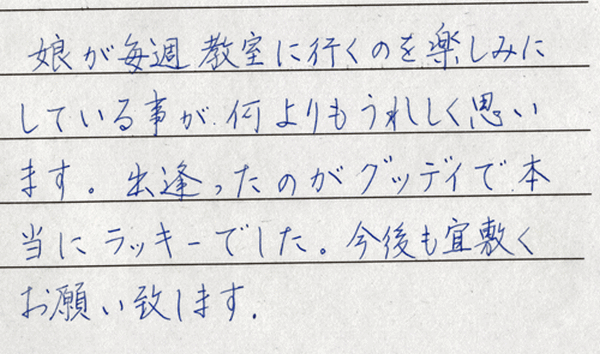 娘が毎週教室に行くのを楽しみに
している事が何よりもうれしく思い
ます。出逢ったのがグッデイで本
当にラッキーでした。今後も宜敷く
お願い致します.